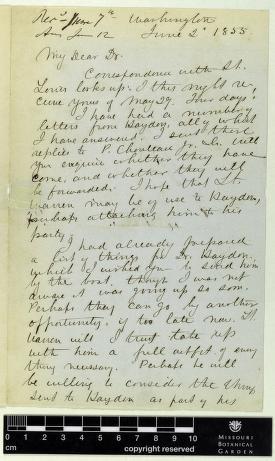 Recd June 7th Washington
Ans Jun 12 June 2d 1855.
My Dear Dr.
Correspondence with St.
Louis looks up. I this night re,
ceive yours of May 29. Four days!
I have had a number
letters from Hayden, all of which
I have answered. I sent these
replies to P. Chouteau Jr. & Co. Will
you enquire whether they have
come, and whether they will
be forwarded. I hope that Lt.
Warren may be of use to Hayden,
perhaps attaching him to his
party.
I had already prepared
a list of things for Dr. Hayden,
which I wished you to send him
by the boat, though I was not
aware it was going up so soon.
Perhaps they can go by another
opportunity, if too late now. Lt.
Warren will I trust take up
with him a full outfit of every
thing necessary. Perhaps he will
be willing to consider the things
sent to Hayden as part of his
0 1 2 3 4 5 6 7 8 9 10
cm
copyright reserved
MISSOURI
BOTANICAL
GARDEN